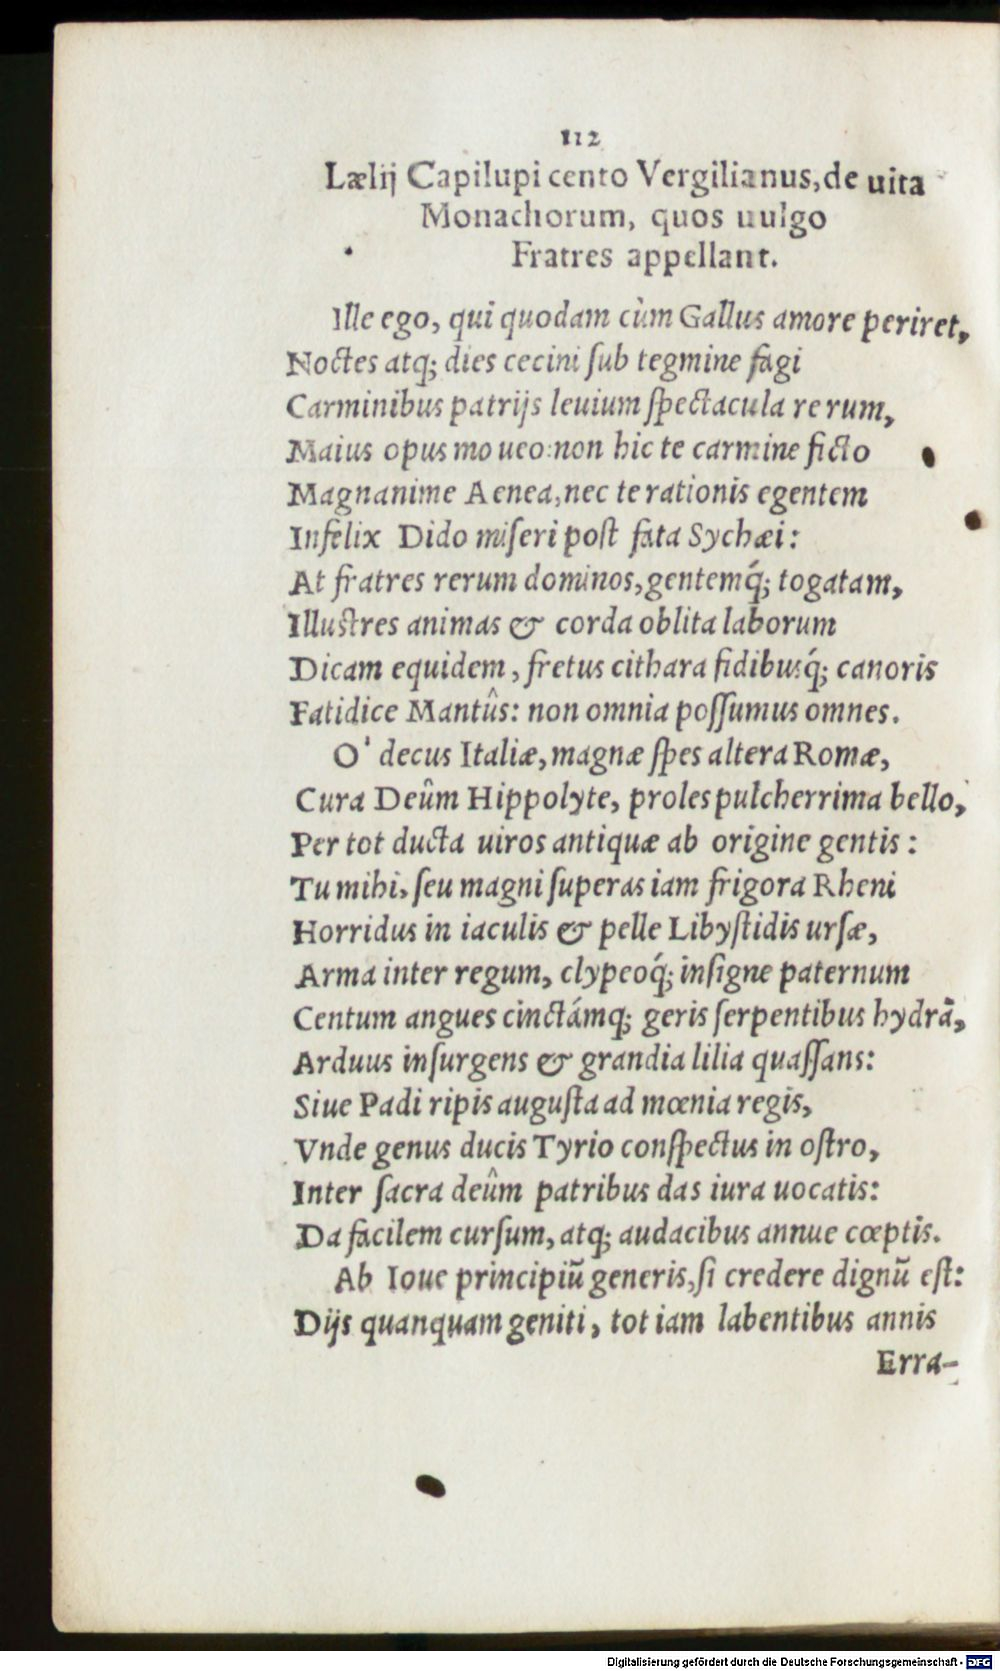 112
Lælij Capilupi cento Vergilianus, de uita
Monachorum, quos uulgo
Fratres appellant.
Ille ego, qui quodam cùm Gallus amore periret,
Noctes atq; dies cecini ſub tegmine fagi
Carminibus patrijs leuium ſpectacula rerum,
Maius opus moueo: non hic te carmine ficto
Magnanime Aenea, nec te rationis egentem
Infelix Dido miſeri poſt fata Sychæi:
At fratres rerum dominos, gentemq́; togatam,
Illuſtres animas & corda oblita laborum
Dicam equidem, fretus cithara fidibusq́; canoris
Fatidice Mantûs: non omnia poſſumus omnes.
O' decus Italiæ, magnæ ſpes altera Romæ,
Cura Deûm Hippolyte, proles pulcherrima bello,
Per tot ducta uiros antiquæ ab origine gentis:
Tu mihi, ſeu magni ſuperas iam frigora Rheni
Horridus in iaculis & pelle Libyſtidis urſæ,
Arma inter regum, clypeoq́; inſigne paternum
Centum angues cinctámq; geris ſerpentibus hydrã,
Arduus inſurgens & grandia lilia quaſſans:
Siue Padi ripis auguſta ad mœnia regis,
Vnde genus ducis Tyrio conſpectus in oſtro,
Inter ſacra deûm patribus das iura uocatis:
Da facilem curſum, atq; audacibus annue cœptis.
Ab Ioue principiũ generis, ſi credere dignũ eſt:
Dijs quanquam geniti, tot iam labentibus annis
Erra-
Digitalisierung gefördert durch die Deutsche Forschungsgemeinschaft - DFG